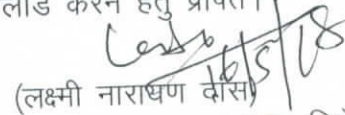 लोड करने हेतु प्रेषित।
16/5/18
(लक्ष्मी नारायण दास)